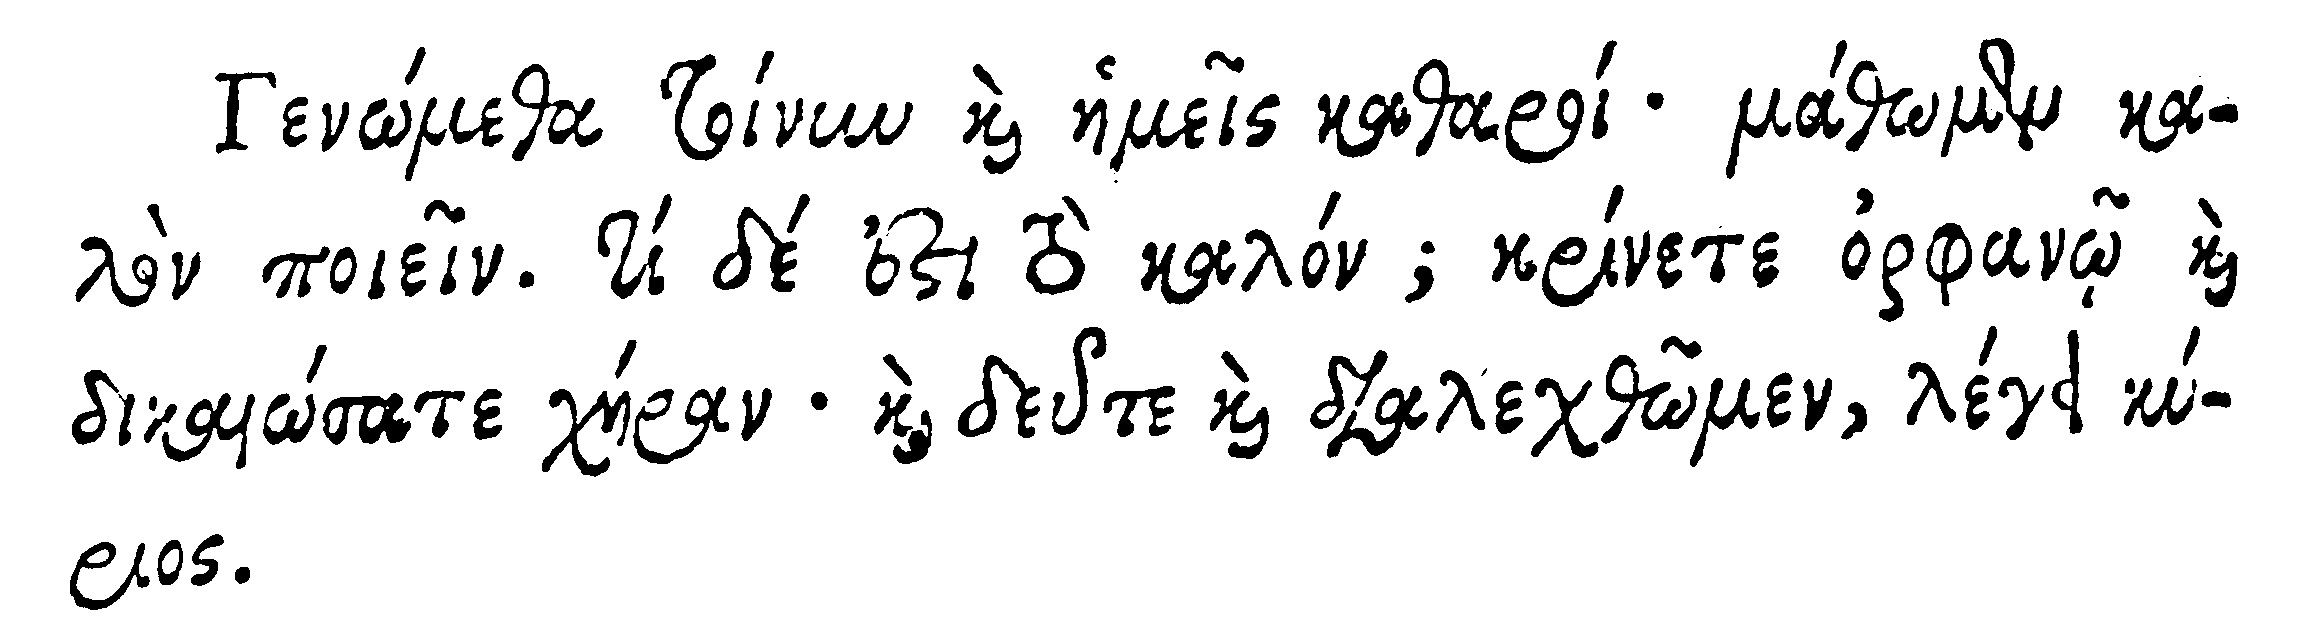 Γενώμεθα τοίνυν καὶ ἡμεῖς καθαροί· μάθωμεν κα-
λὸν ποιεῖν. τί δέ ἐστι τὸ καλόν; κρίνετε ὀρφανῷ καὶ
δικαιώσατε χήραν· καὶ δεῦτε καὶ διαλεχθῶμεν, λέγει κύ-
ριος.